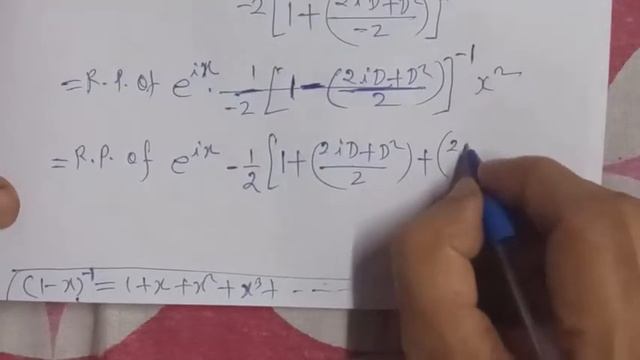 -2[1+(2iD+D²/-2)]
=R.P. of e^{ix} . 1/-2 [1-(2iD+D²/2)]^{-1} x²
=R.P. of e^{ix} -1/2 [1+(2iD+D²/2)+(2
(1-x)^{-1} = 1+x+x²+x³+ -----